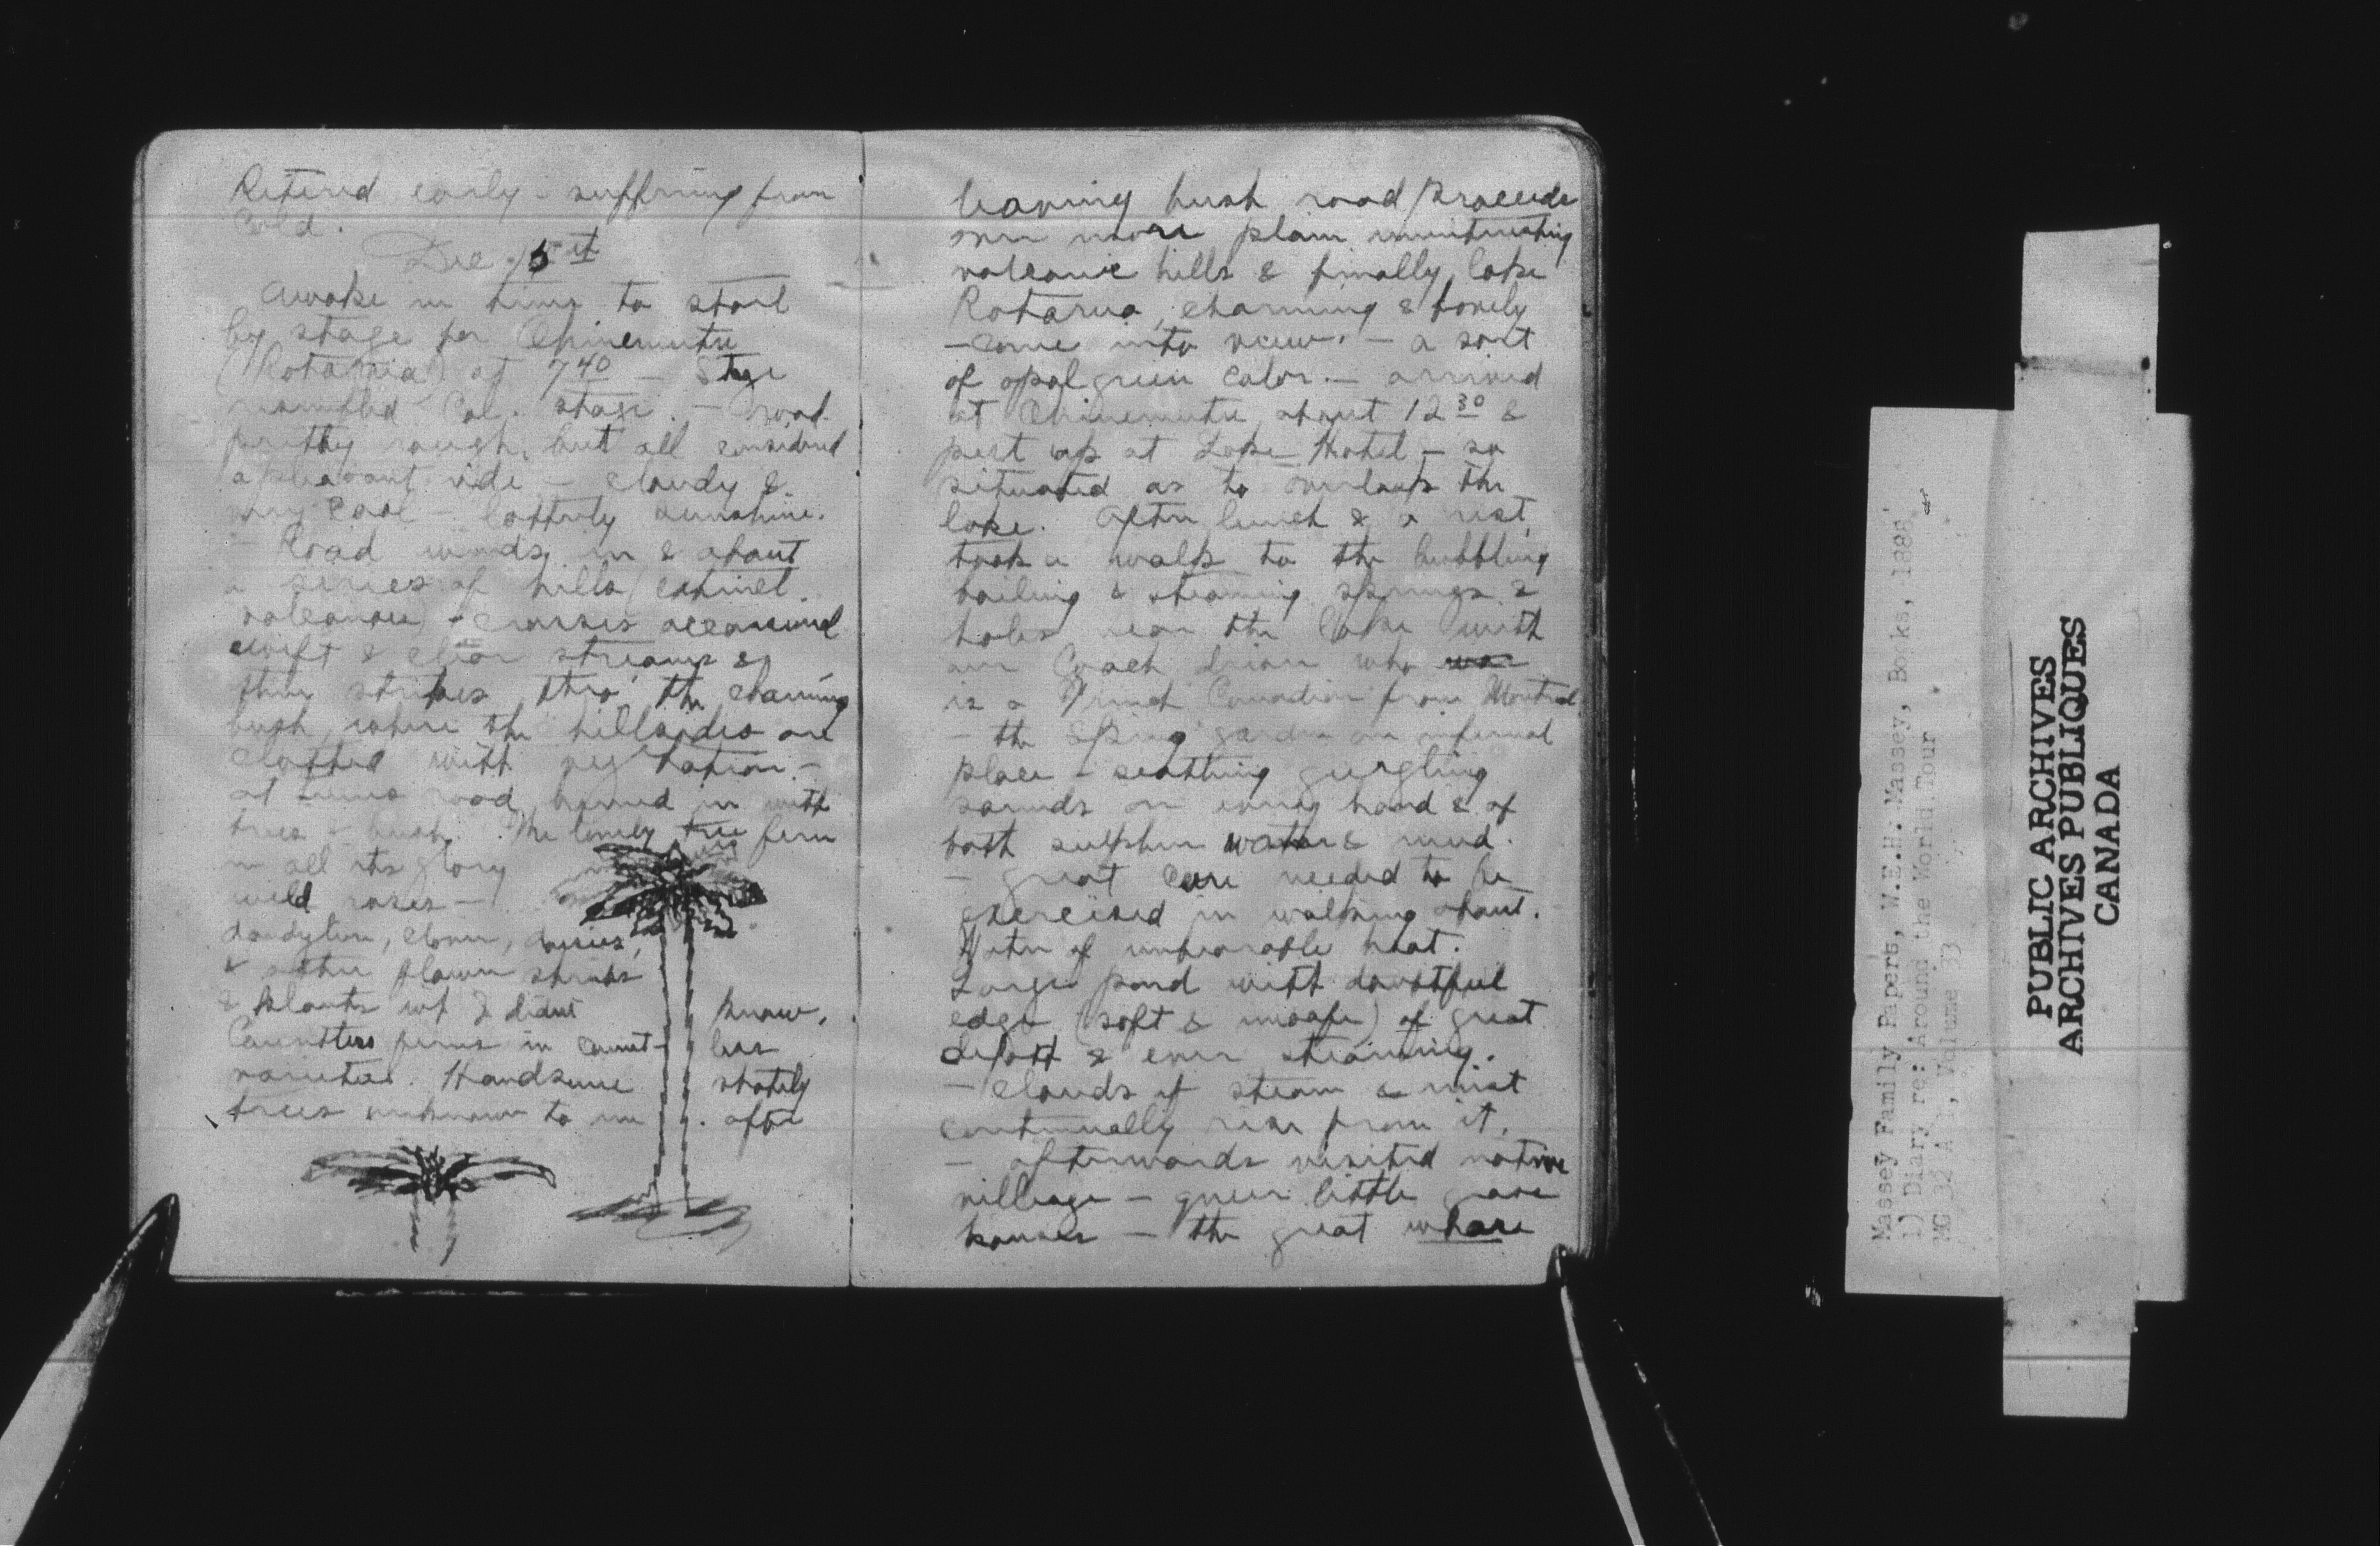 Retired early - suffering from
cold.
Dec 5th
Awoke in time to start
by stage for Ohinemutu
(Rotarua) at 7 40 - Stage
resembled Cal. stage. - road
pretty rough, but all considered
a pleasant ride - cloudy &
very cool - latterly sunshine.
- Road winds in & about
a series of hills (extinct
volcanoes) - crosses occasional
swift & clear streams &
then strikes thro' the charming
bush, where the hillsides are
clothed with vegetation. -
at times road hemmed in with
trees & bush. The lovely tree fern
in all its glory
wild roses -
dandylion, clover, daisies,
& other flower shrubs
& plants wh I didnt know.
Countless ferns in countless
varieties. Handsome stately
trees unknown to me. after
leaving bush road proceeds
over more plain uninteresting
volcanic hills & finally lake
Rotarua, charming & lovely
- come into view. - a sort
of opal green color. - arrived
at Ohinemutu about 12 30 &
put up at Lake Hotel - so
situated as to overlook the
lake. After lunch & a rest,
took a walk to the bubbling
boiling & steaming springs &
holes near the lake with
our Coach driver who was
is a French Canadian from Montreal
- the Spring garden an infernal
place - seathing gurgling
sounds on every hand & of
both sulphur water & mud.
- great care needed to be
exercised in walking about.
Water of unbearable heat.
Large pond with doubtful
edge (soft & unsafe) of great
depth & ever steaming.
- clouds of steam & mist
continually rise from it.
- afterwards visited native
village - queer little
houses - the great whare
Massey Family Papers, W.E.H. Massey, Books, 1888,
1) Diary re: Around the World Tour
MG 32 A 1, Volume 33
PUBLIC ARCHIVES
ARCHIVES PUBLIQUES
CANADA